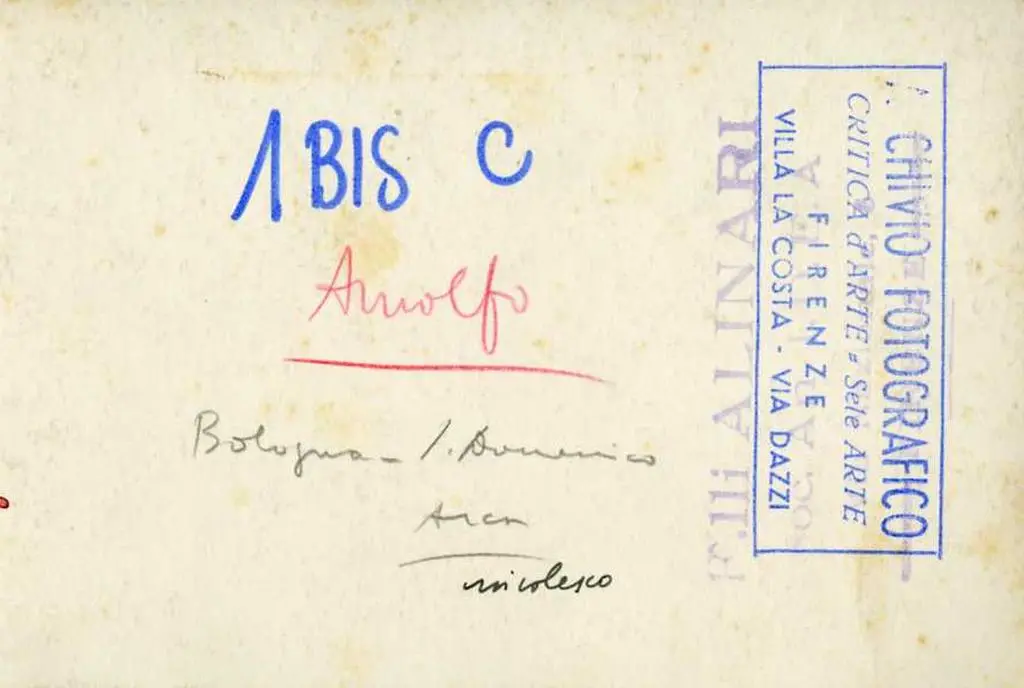 1 BIS C
Arnolfo
Bologna - S. Domenico
Arca
CHIVIO FOTOGRAFICO
CRITICA d'ARTE = Sele ARTE
FIRENZE
VILLA LA COSTA - VIA DAZZI
F.LLI ALINARI